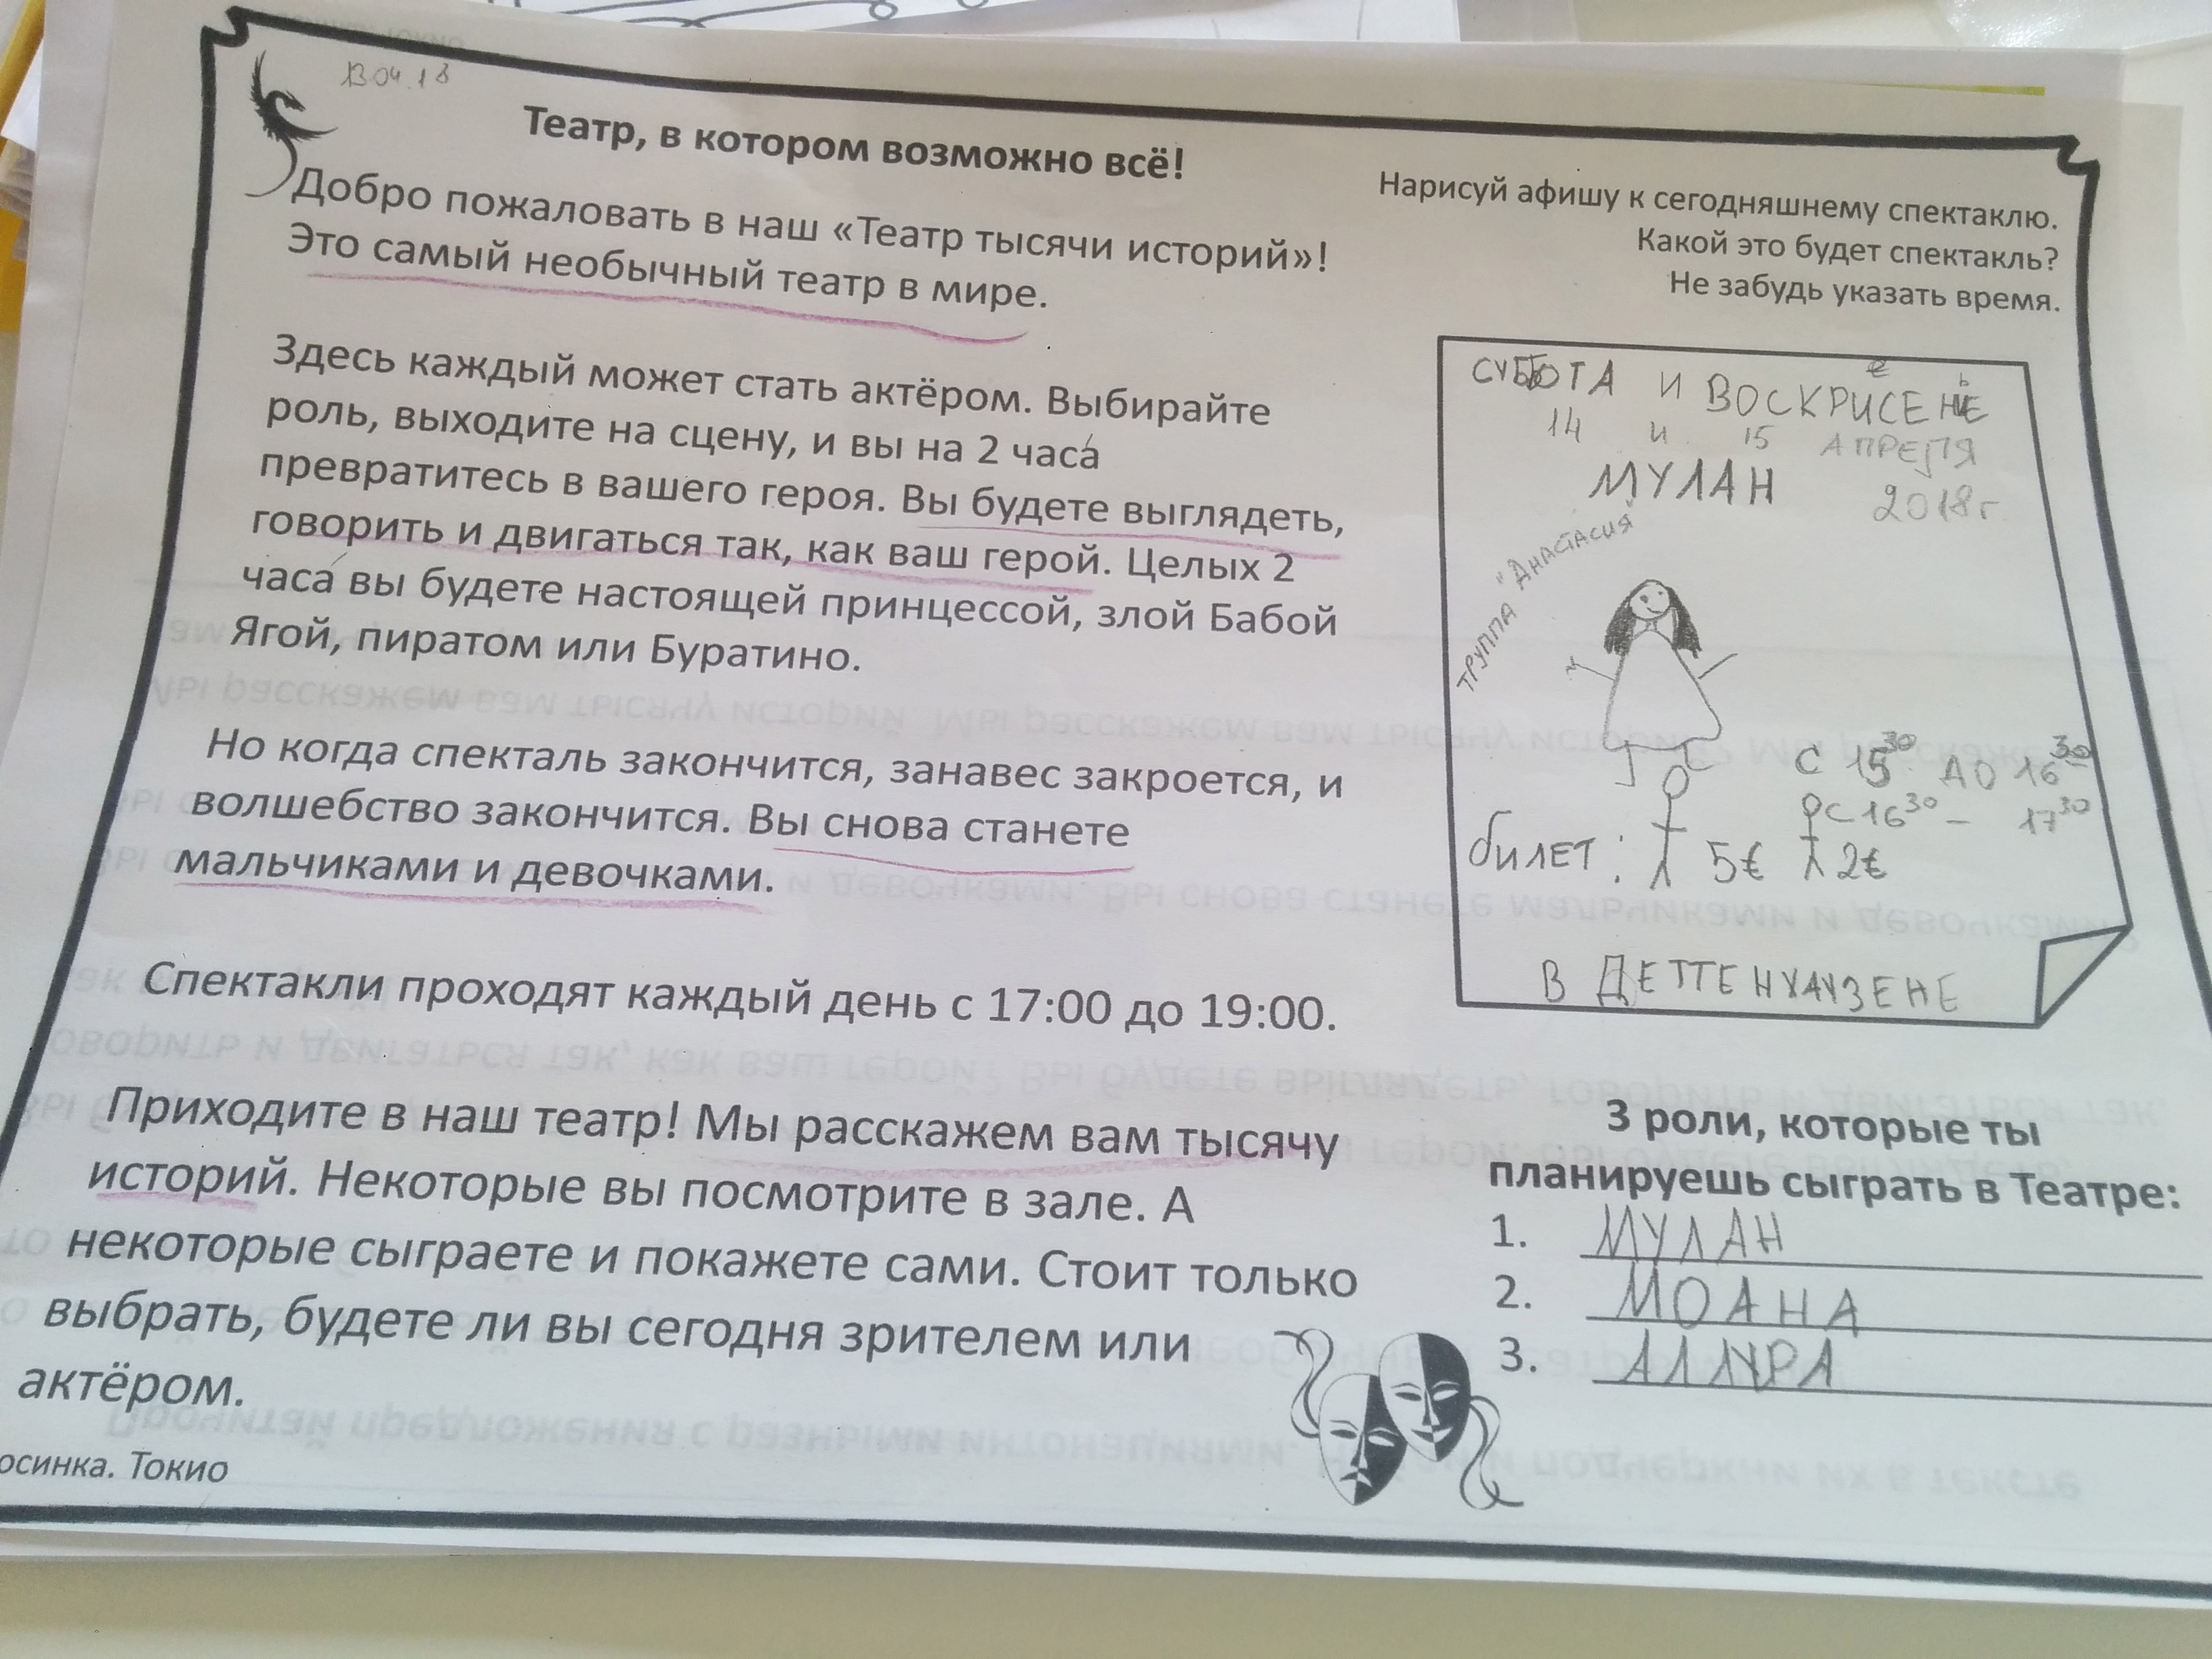 13 04.18
Театр, в котором возможно всё!
Добро пожаловать в наш «Театр тысячи историй»!
Это самый необычный театр в мире.
Здесь каждый может стать актёром. Выбирайте
роль, выходите на сцену, и вы на 2 часа́
превратитесь в вашего героя. Вы будете выглядеть,
говорить и двигаться так, как ваш герой. Целых 2
часа́ вы будете настоящей принцессой, злой Бабой
Ягой, пиратом или Буратино.
Но когда спекталь закончится, занавес закроется, и
волшебство закончится. Вы снова станете
мальчиками и девочками.
Спектакли проходят каждый день с 17:00 до 19:00.
Приходите в наш театр! Мы расскажем вам тысячу
историй. Некоторые вы посмотрите в зале. А
некоторые сыграете и покажете сами. Стоит только
выбрать, будете ли вы сегодня зрителем или
актёром.
осинка. Токио
Нарисуй афишу к сегодняшнему спектаклю.
Какой это будет спектакль?
Не забудь указать время.
СУББОТА И ВОСКРИСЕНЬЕ
14 и 15 АПРЕЛЯ
МУЛАН 2018г
ТРУППА "АНАСТАСИЯ"
С 15 30 ДО 16 30
С 16 30 – 17 30
билет: 5€ 2€
В ДЕТТЕНХАУЗЕНЕ
3 роли, которые ты
планируешь сыграть в Театре:
1. МУЛАН
2. МОАНА
3. АЛЛУРА